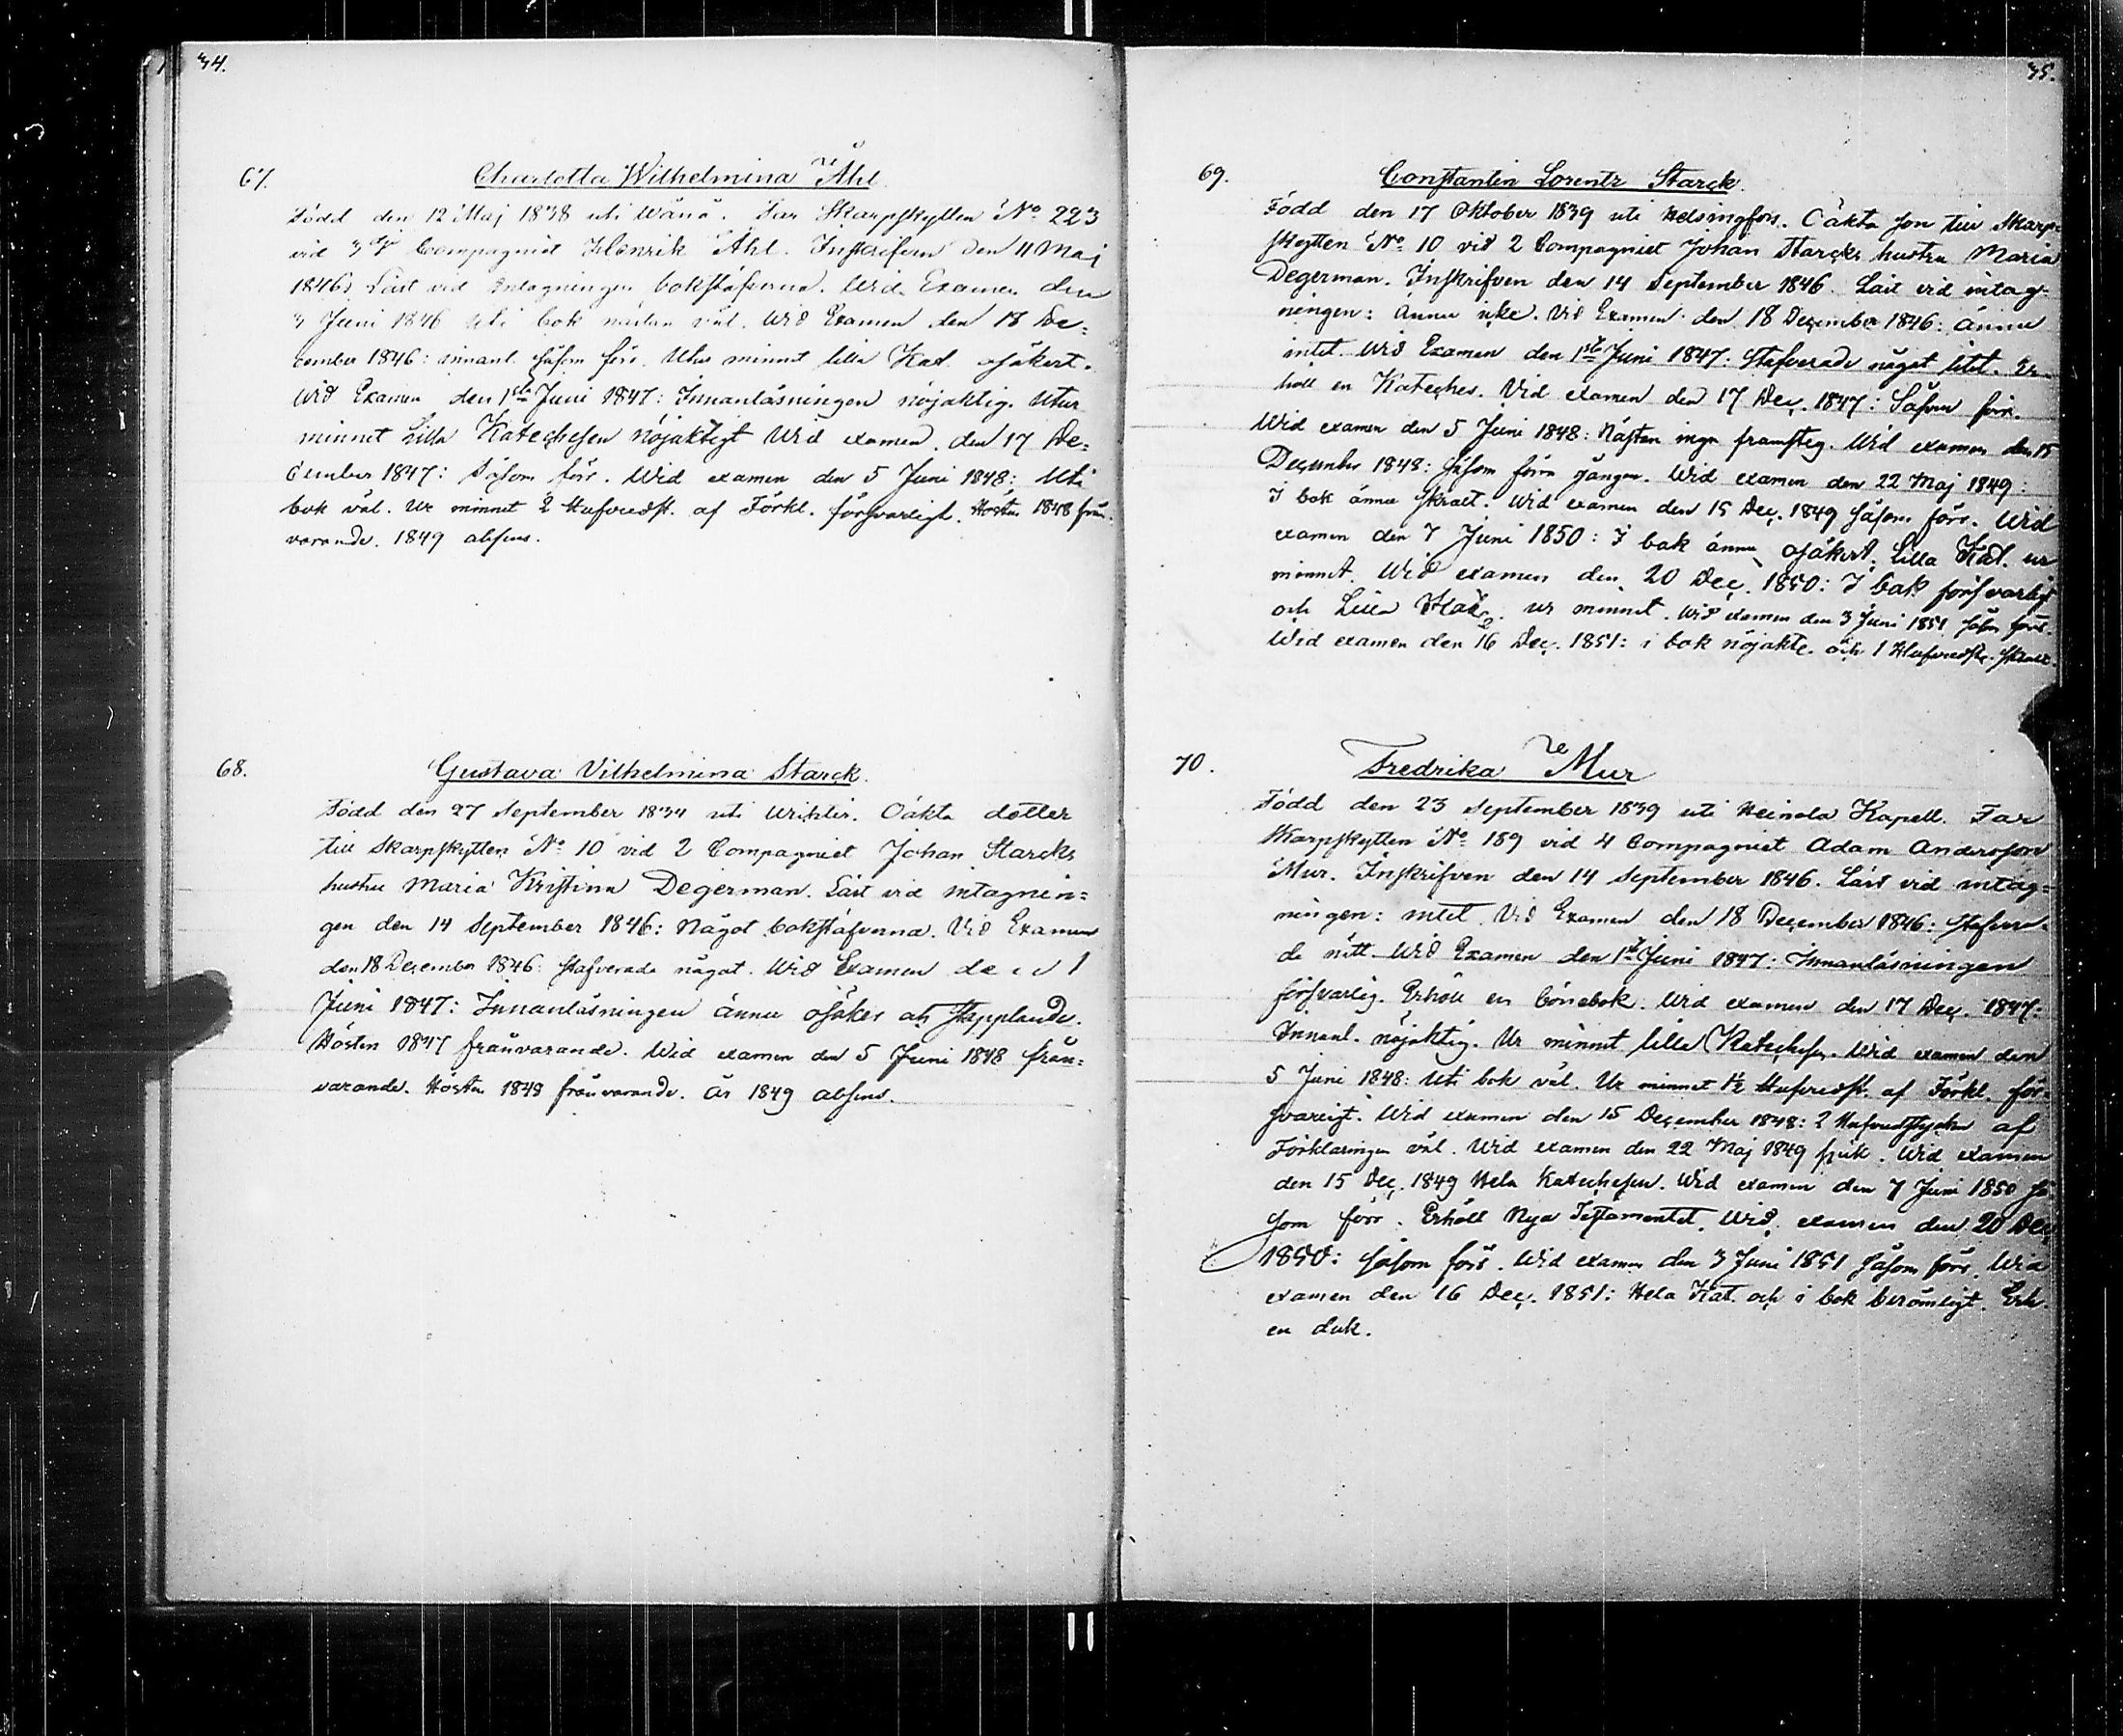 34.
67.
Charlotta Wilhelmina Åhl
Född den 12 Maj 1838 uti Wånå. Far Skarpskytten No 223
vid 3dje Compagniet Henrik Åhl. Inskrifven den 11 Maj
1846. Läst vid Intagningen bokstäfverna. Wid Examen den
3 Juni 1846 uti bok nästan väl. Wid Examen den 18 De=
cember 1846: innanl. såsom förr. Utur minnet lilla Kat. osäkert.
Wid Examen den 1sta Juni 1847: Innanläsningen nöjaktig. Utur
minnet Lilla Katechesen nöjaktigt Wid examen den 17 De=
cember 1847: Såsom förr. Wid examen den 5 Juni 1848: Uti
bok väl. Ur minnet 2 Hufvudst. af Förkl. försvarligt. Hösten 1848 från=
varande. 1849 absens.
68.
Gustava Vilhelmina Starck.
Född den 27 September 1834 uti Urihtis. Oäkta dotter
till Skarpskytten No 10 vid 2 Compagniet Johan Starcks
hustru Maria Kristina Degerman. Läst vid intagnin=
gen den 14 September 1846: Något bokstäfverna. Vid Examen
den 18 December 1846: stafverade något. Wid Examen den 1
Juni 1847: Innanläsningen ännu osäker och stapplande.
Hösten 1847 frånvarande. Wid examen den 5 Juni 1848 från=
varande. Hösten 1848 frånvarande. År 1849 absens.
35.
69.
Constantin Lorentz Starck.
Född den 17 Oktober 1839 uti Helsingfors. Oäkta son till Skarp=
skytten No 10 vid 2 Compagniet Johan Starcks hustru Maria
Degerman. Inskrifven den 14 September 1846. Läst vid intag=
ningen: ännu icke. Vid Examen den 18 December 1846: ännu
intet. Wid Examen den 1sta Juni 1847: Stafverade något litet. Er=
höll en Kateches. Vid examen den 17 Dec. 1847: Såsom förr.
Wid examen den 5 Juni 1848: Nästan inga framsteg. Wid examen den 15
December 1848: såsom förra gången. Wid examen den 22 Maj 1849:
I bok ännu skralt. Wid examen den 15 Dec. 1849 såsom förr. Wid
examen den 7 Juni 1850: I bok ännu osäkert. Lilla Kat. ur
minnet. Wid examen den 20 Dec. 1850: I bok försvarligt
och Lilla Kat. ur minnet. Wid examen den 3 Juni 1851 såsom förr.
Wid examen den 16 Dec. 1851: i bok nöjakt. och 1 Hufvudst. skralt.
70.
Fredrika Mur
Född den 23 September 1839 uti Heinola Kapell. Far
Skarpskytten No 189 vid 4 Compagniet Adam Andersson
Mur. Inskrifven den 14 September 1846. Läst vid intag=
ningen: intet. Vid Examen den 18 December 1846: stafvera=
de nätt. Wid Examen den 1sta Juni 1847: Innanläsningen
försvarlig. Erhöll en bönebok. Wid examen den 17 Dec. 1847:
Innanl. nöjaktig. Ur minnet lilla Katechesen. Wid examen den
5 Juni 1848: Uti bok väl. Ur minnet 1½ Hufvudst. af Förkl. för=
svarligt. Wid examen den 15 December 1848: 2 Hufvudstycken af
Förklaringen väl. Wid examen den 22 Maj 1849 sjuk. Wid examen
den 15 Dec. 1849 Hela Katechesen. Wid examen den 7 Juni 1850 så
som förr. Erhöll Nya Testamentet. Wid examen den 20 Dec
1850: såsom förr. Wid examen den 3 Juni 1851 såsom förr. Wid
examen den 16 Dec. 1851: Hela Kat. och i bok berömligt. Erh.
en duk.